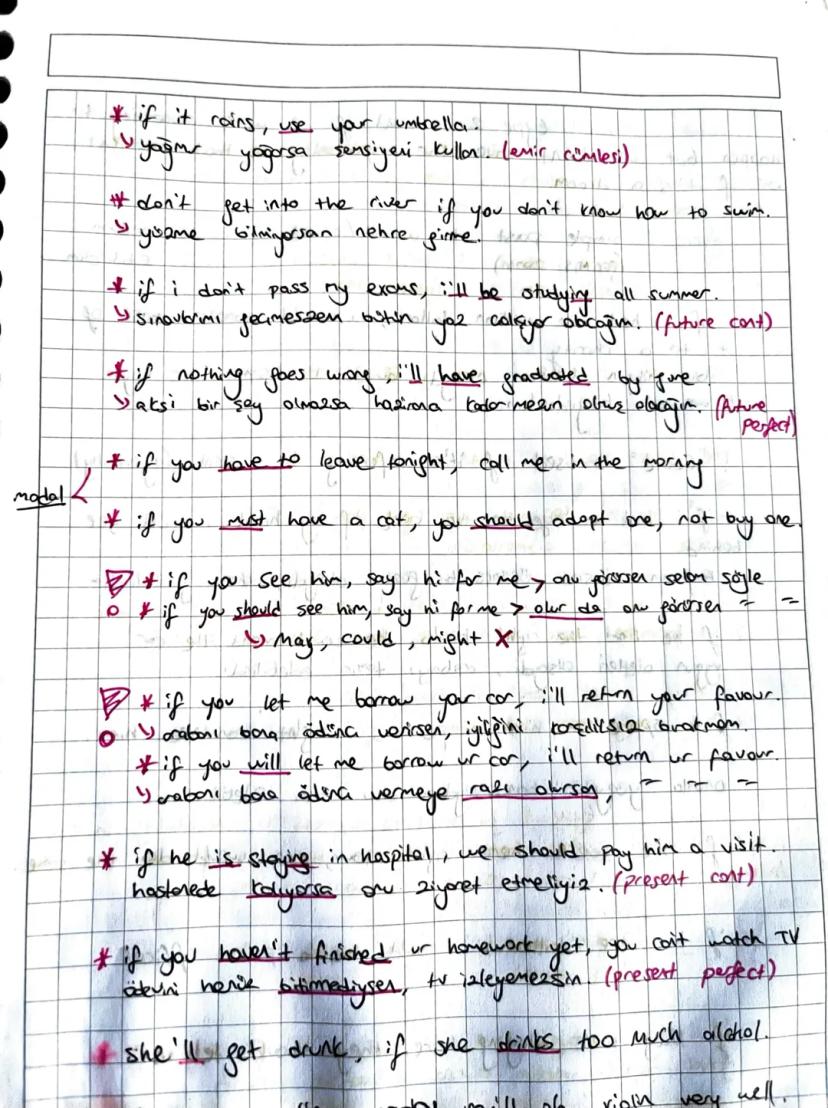 * if it rains, use your umbrella.
↳ yağmur yağarsa şemsiyeni kullan. (emir cümlesi)
* don't get into the river if you don't know how to swim.
↳ yüzme bilmiyorsan nehre girme.
* if i don't pass my exams, i'll be studying all summer.
↳ sınavlarımı geçmezsem bütün yaz çalışıyor olacağım. (future cont)
* if nothing goes wrong, i'll have graduated by june
↳ aksi bir şey olmazsa hazirana kadar mezun olmuş olacağım. (future perfect)
* if you have to leave tonight, call me in the morning
modal <
* if you must have a cat, you should adopt one, not buy one.
* if you see him, say hi for me > onu görürsen selam söyle
* if you should see him, say hi for me > olur da onu görürsen = =
↳ may, could, might X
* if you let me borrow your car, i'll return your favour.
↳ arabanı bana ödünç verirsen, iyiliğini karşılıksız bırakmam.
* if you will let me borrow ur car, i'll return ur favour.
↳ arabanı bana ödünç vermeye razı olursan, = = =
* if he is staying in hospital, we should pay him a visit.
hastanede kalıyorsa onu ziyaret etmeliyiz. (present cont)
* if you haven't finished ur homework yet, you can't watch TV
ödevini henüz bitirmediysen, tv izleyemezsin. (present perfect)
* she'll get drunk, if she drinks too much alcohol.
violin very well.